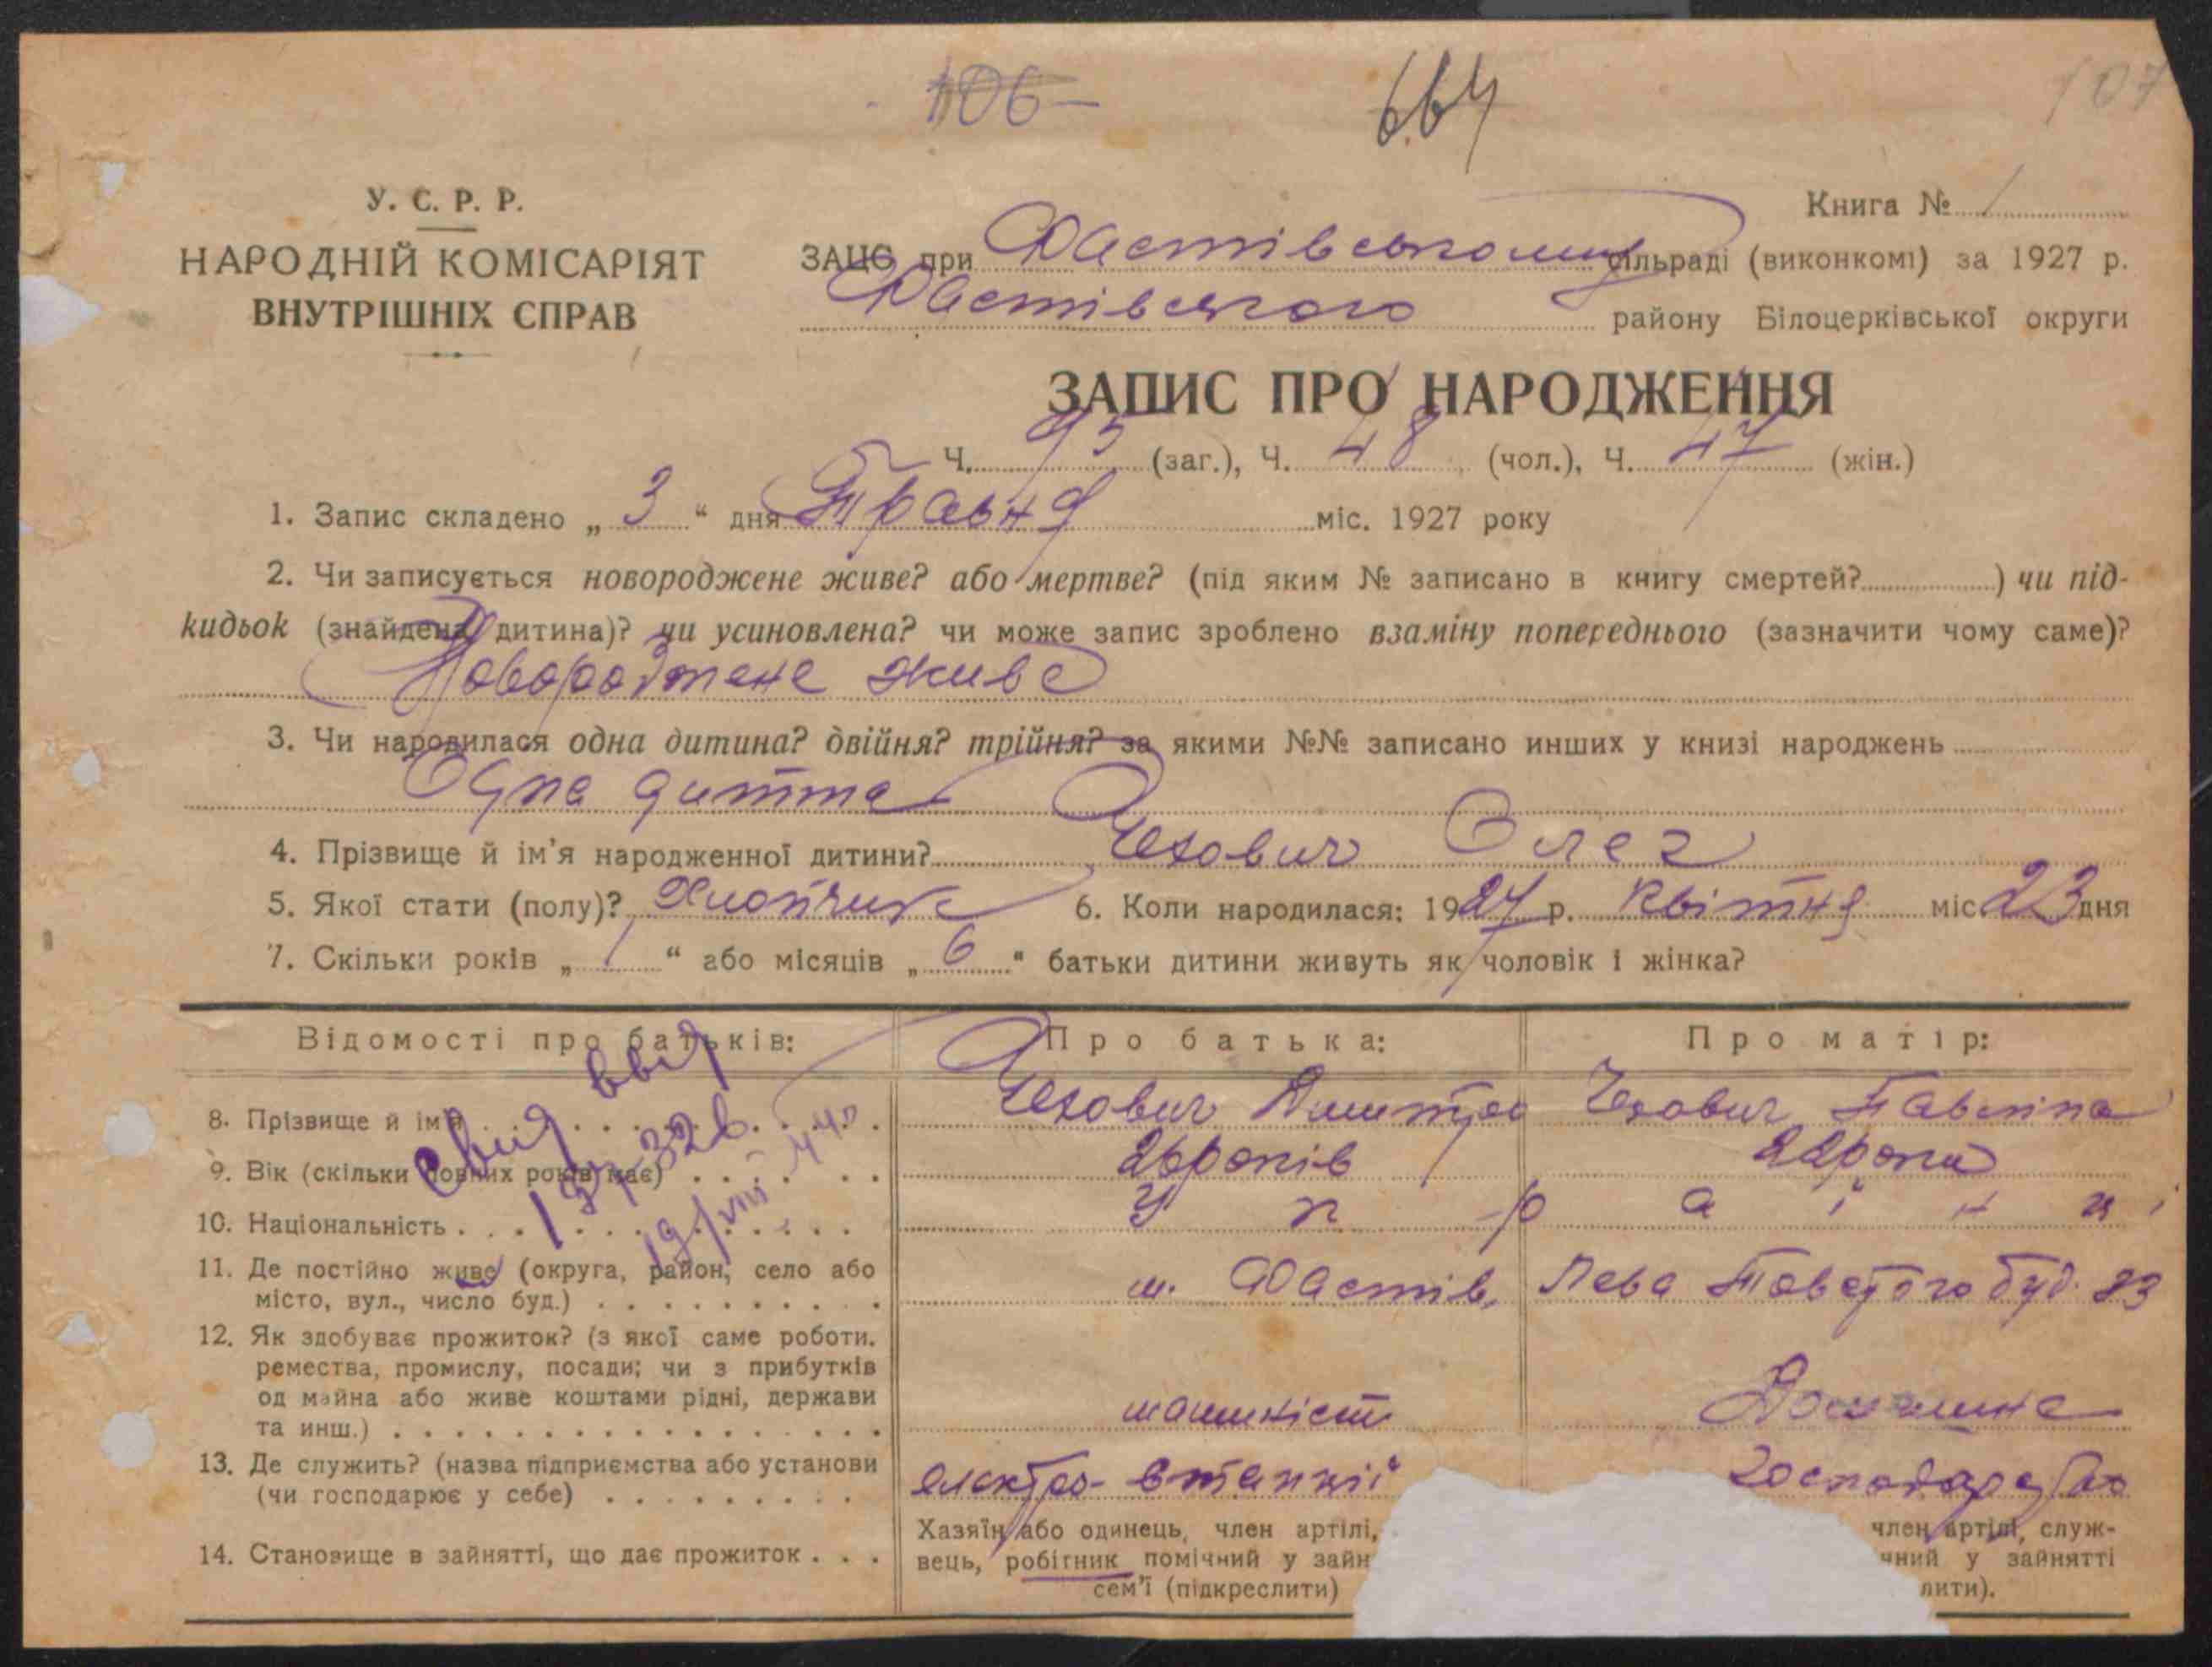 106
664
107
У. С. Р. Р.
НАРОДНІЙ КОМІСАРІЯТ
ВНУТРІШНІХ СПРАВ
Книга № 1
ЗАЦС при Фастівському сільраді (виконкомі) за 1927 р.
Фастівського району Білоцерківської округи
ЗАПИС ПРО НАРОДЖЕННЯ
Ч. 95 (заг.), Ч. 48 (чол.), Ч. 47 (жін.)
1. Запис складено „ 3 “ дня Травня міс. 1927 року
2. Чи записується новороджене живе? або мертве? (під яким № записано в книгу смертей? ) чи під-
кидьок (знайдена дитина)? чи усиновлена? чи може запис зроблено взаміну попереднього (зазначити чому саме)?
Новороджене живе
3. Чи народилася одна дитина? двійня? трійня? за якими №№ записано инших у книзі народжень
Одна
4. Прізвище й ім'я народженної дитини? Чехович Олег
5. Якої стати (полу)? Хлопчик 6. Коли народилася: 1927 р. Квітня міс. 23 дня
7. Скільки років „ 1 “ або місяців „ 6 “ батьки дитини живуть як чоловік і жінка?
Відомості про батьків: Про батька: Про матір:
8. Прізвище й ім'я Чехович Дмитро Чехович Павліна
9. Вік (скільки повних років має) 26 років 22 роки
10. Національність У к р а ї н ц і
11. Де постійно живе (округа, район, село або
місто, вул., число буд.) м. Фастів, Лева Товстого буд. 23
12. Як здобуває прожиток? (з якої саме роботи.
ремества, промислу, посади; чи з прибутків
од майна або живе коштами рідні, держави
та инш.) машиніст Домашнє
13. Де служить? (назва підприємства або установи
(чи господарює у себе) електро-станції господарство
14. Становище в зайнятті, що дає прожиток
Хазяїн або одинець, член артілі,
вець, робітник помічний у зайн
сем'ї (підкреслити)
член артілі, служ-
чний у зайнятті
лити).